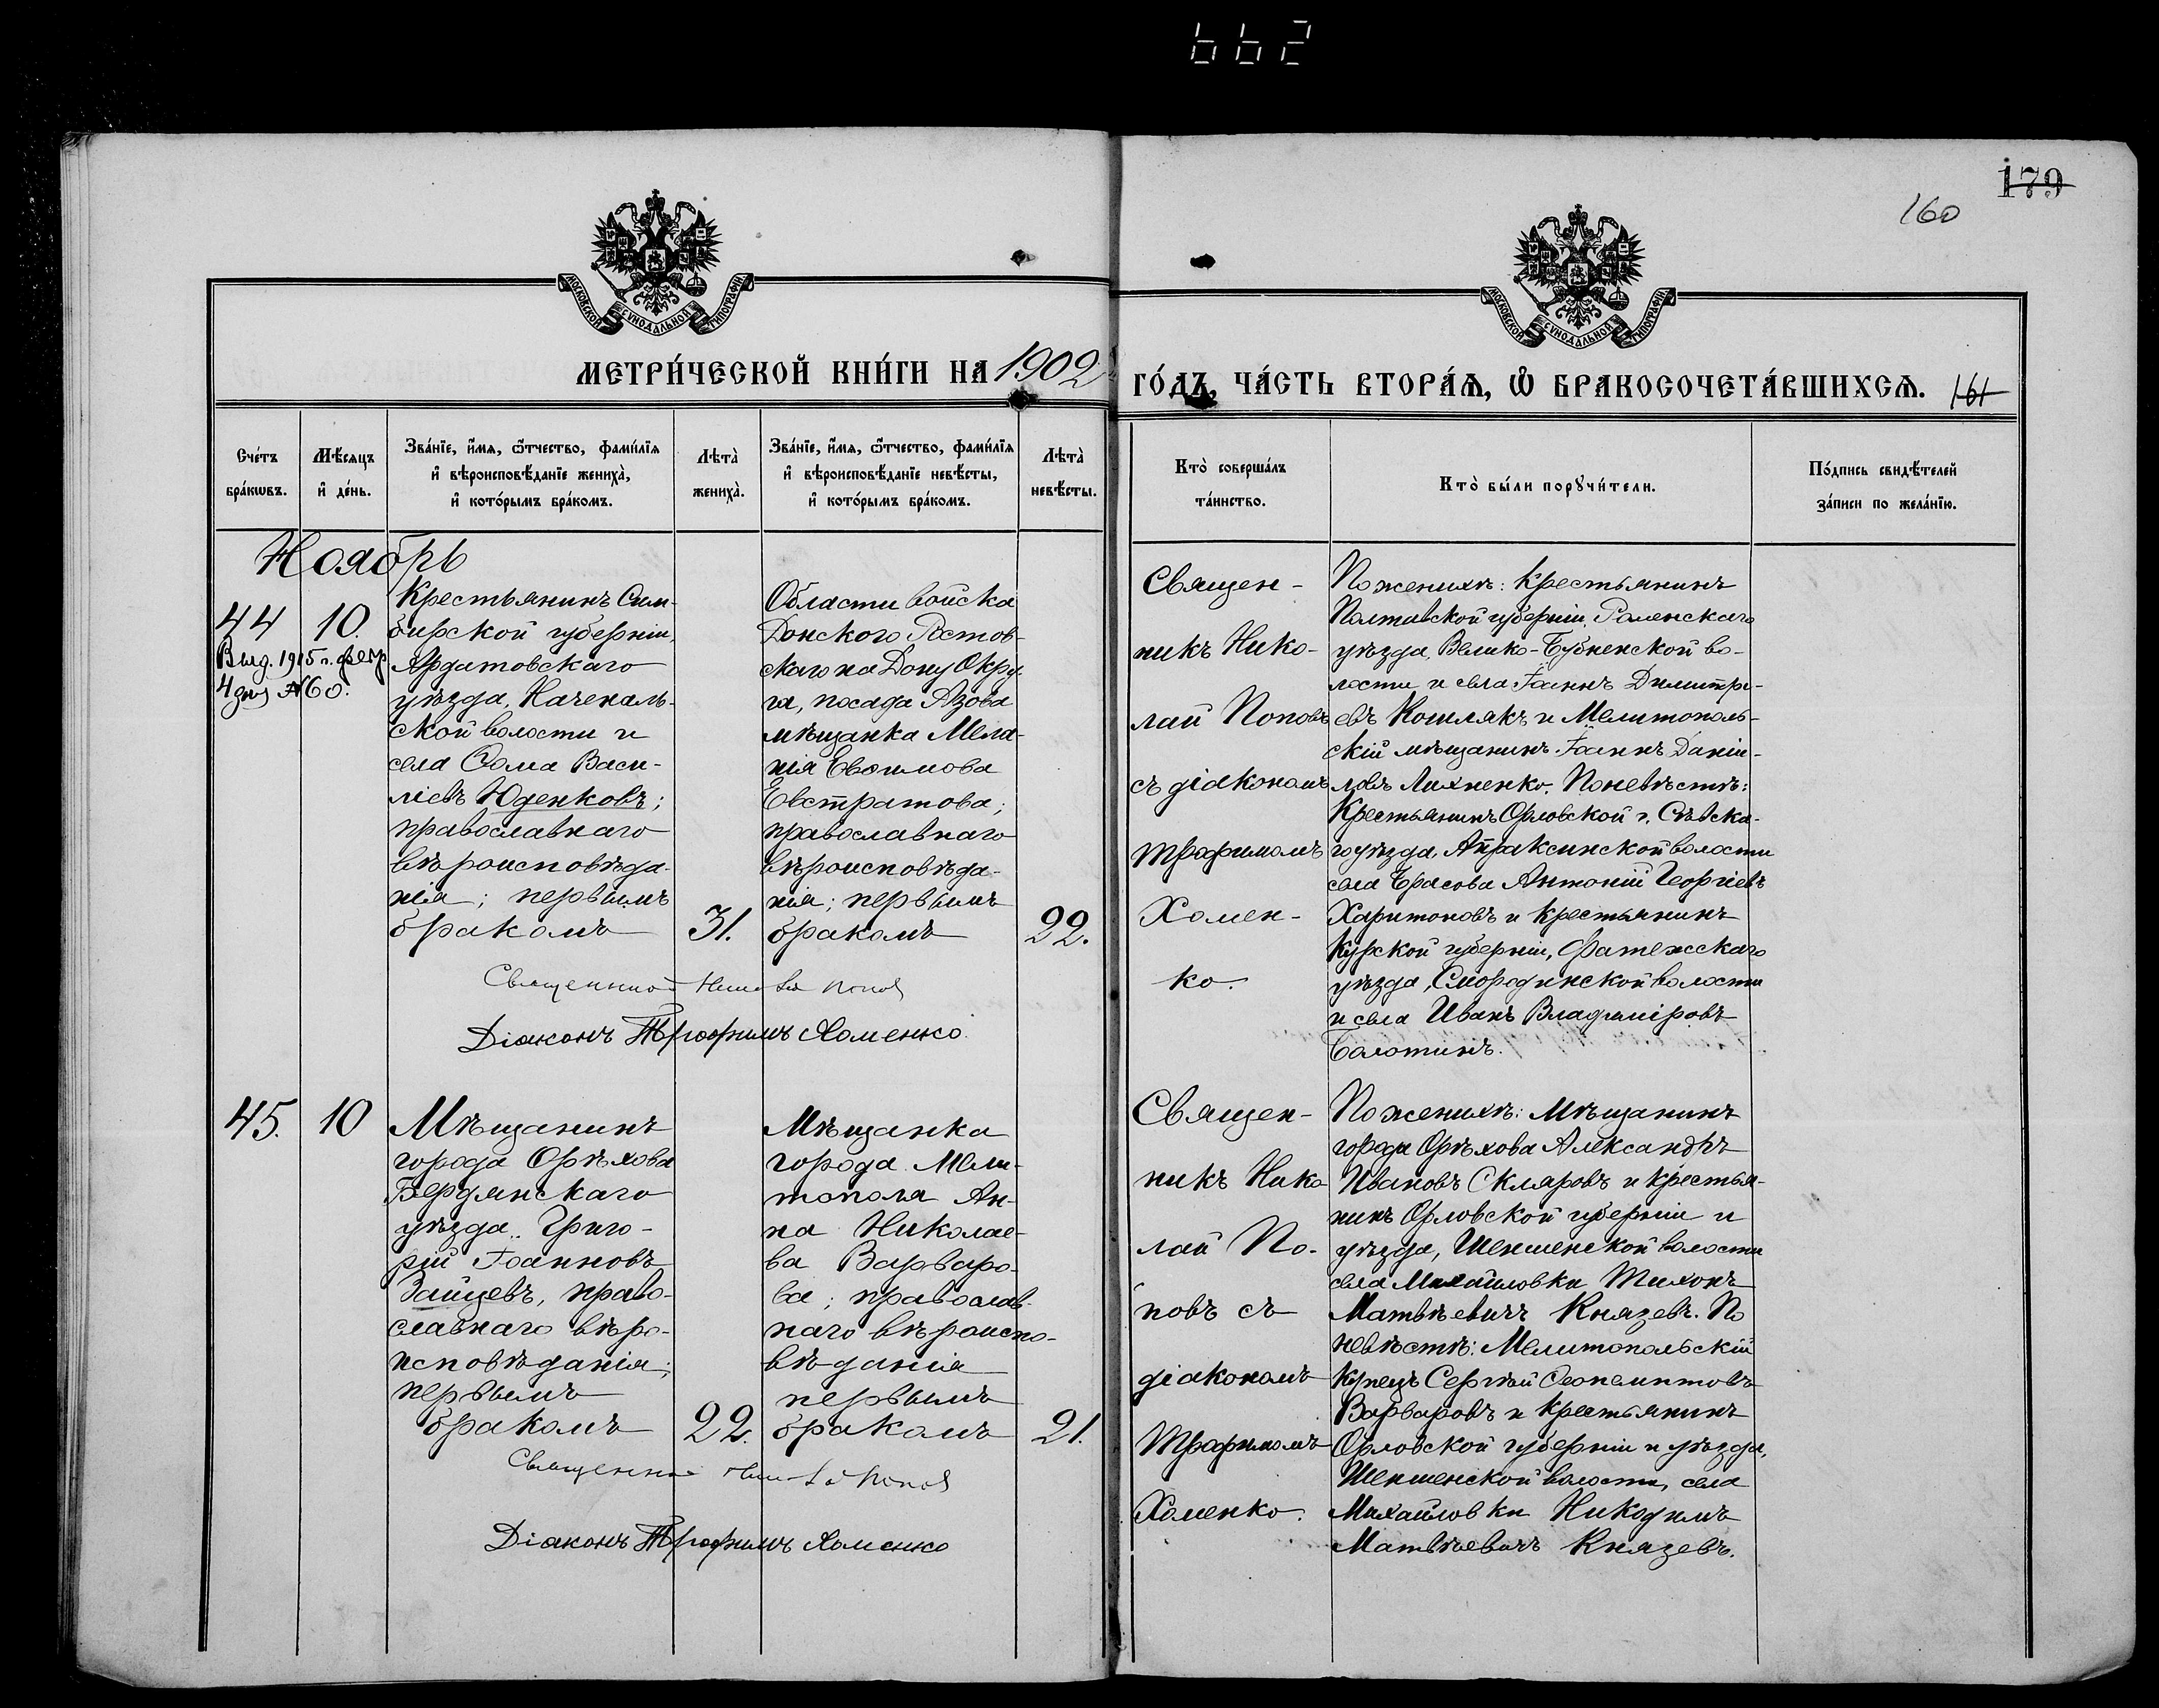 662
179
160
МОСКОВСКОЙ СѴНОДАЛЬНОЙ ТИПОГРАФІИ
МОСКОВСКОЙ СѴНОДАЛЬНОЙ ТИПОГРАФІИ
МЕТРИ́ЧЕСКОЙ КНИ́ГИ НА 1902
ГО́ДЪ, ЧА́СТЬ ВТОРА́Ѧ, Ѽ БРАКОСОЧЕТА́ВШИХСѦ.
161
Сче́тъ бра́кѡвъ.
Мѣ́сяцъ и҆ де́нь.
Зва́нїе, и҆́мѧ, ѻ҆́тчество, фами́лїѧ и҆ вѣроисповѣ́данїе жениха̀, и҆ кото́рымъ бра́комъ.
Лѣта̀ жениха̀.
Зва́нїе, и҆́мѧ, ѻ҆́тчество, фами́лїѧ и҆ вѣроисповѣ́данїе невѣ́сты, и҆ кото́рымъ бра́комъ.
Лѣта̀ невѣ́сты.
Кто̀ соверша́лъ та́инство.
Кто̀ бы́ли порꙋчи́тели.
По́дпись свидѣ́телей за́писи по жела́нїю.
Ноябрь
44
10.
Выд. 1915 г. февр
4 дня №60.
Крестьянинъ Сим-
бирской губерніи,
Ардатовскаго
уѣзда, Каченаль-
ской волости и
села Ѳома Васи-
ліевъ Юденковъ;
православнаго
вѣроисповѣда-
нія; первымъ
бракомъ
31.
Области войска
Донского Ростов-
скаго на Дону Окру-
га, посада Азова
мѣщанка Мела-
нія Евѳимова
Евстратова;
православнаго
вѣроисповѣда-
нія; первымъ
бракомъ
22.
Священникъ Николай Попов
Діаконъ Трофимъ Хоменко.
Священ-
никъ Нико-
лай Поповъ
съ діакономъ
Трофимомъ
Хомен-
ко.
По женихѣ: Крестьянинъ
Полтавской губерніи, Роменскаго
уѣзда, Велико-Бубненской во-
лости и села Іоаннъ Димитрі-
евъ Кошлякъ и Мелитополь-
скій мѣщанинъ Іоаннъ Даніи-
ловъ Лихненко. По невѣстѣ:
Крестьянинъ Орловской г. Сѣвска-
го уѣзда, Апраксинской волости
села Брасова Антоній Георгіевъ
Харитоновъ и крестьянинъ
Курской губерніи, Фатежскаго
уѣзда, Смородинской волости
и села Иванъ Владиміровъ
Болотинъ.
45.
10
Мѣщанинъ
города Орѣхова
Бердянскаго
уѣзда Григо-
рій Іоанновъ
Зайцевъ, право-
славнаго вѣро-
исповѣданія;
первымъ
бракомъ
22.
Мѣщанка
города Мели-
тополя Ан-
на Николае-
ва Варваро-
ва; православ-
наго вѣроиспо-
вѣданія
первымъ
бракомъ
21.
Священникъ Николай Попов
Діаконъ Трофимъ Хоменко
Священ-
никъ Нико-
лай По-
повъ съ
діакономъ
Трофимомъ
Хоменко.
По женихѣ: Мѣщанинъ
города Орѣхова Александръ
Ивановъ Скляровъ и крестья-
нинъ Орловской губерніи и
уѣзда, Шеншенской волости
села Михайловки Тихонъ
Матвѣевичъ Князевъ. По
невѣстѣ: Мелитопольскій
Купецъ Сергѣй Ѳеопемптовъ
Варваровъ и крестьянинъ
Орловской губерніи и уѣзда,
Шеншенской волости, села
Михайловки Никодимъ
Матвѣевичъ Князевъ.